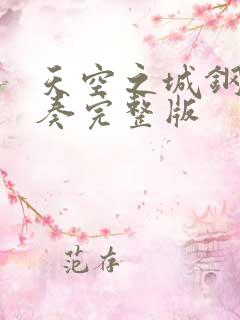 天空之城鋼
奏完整版
范存